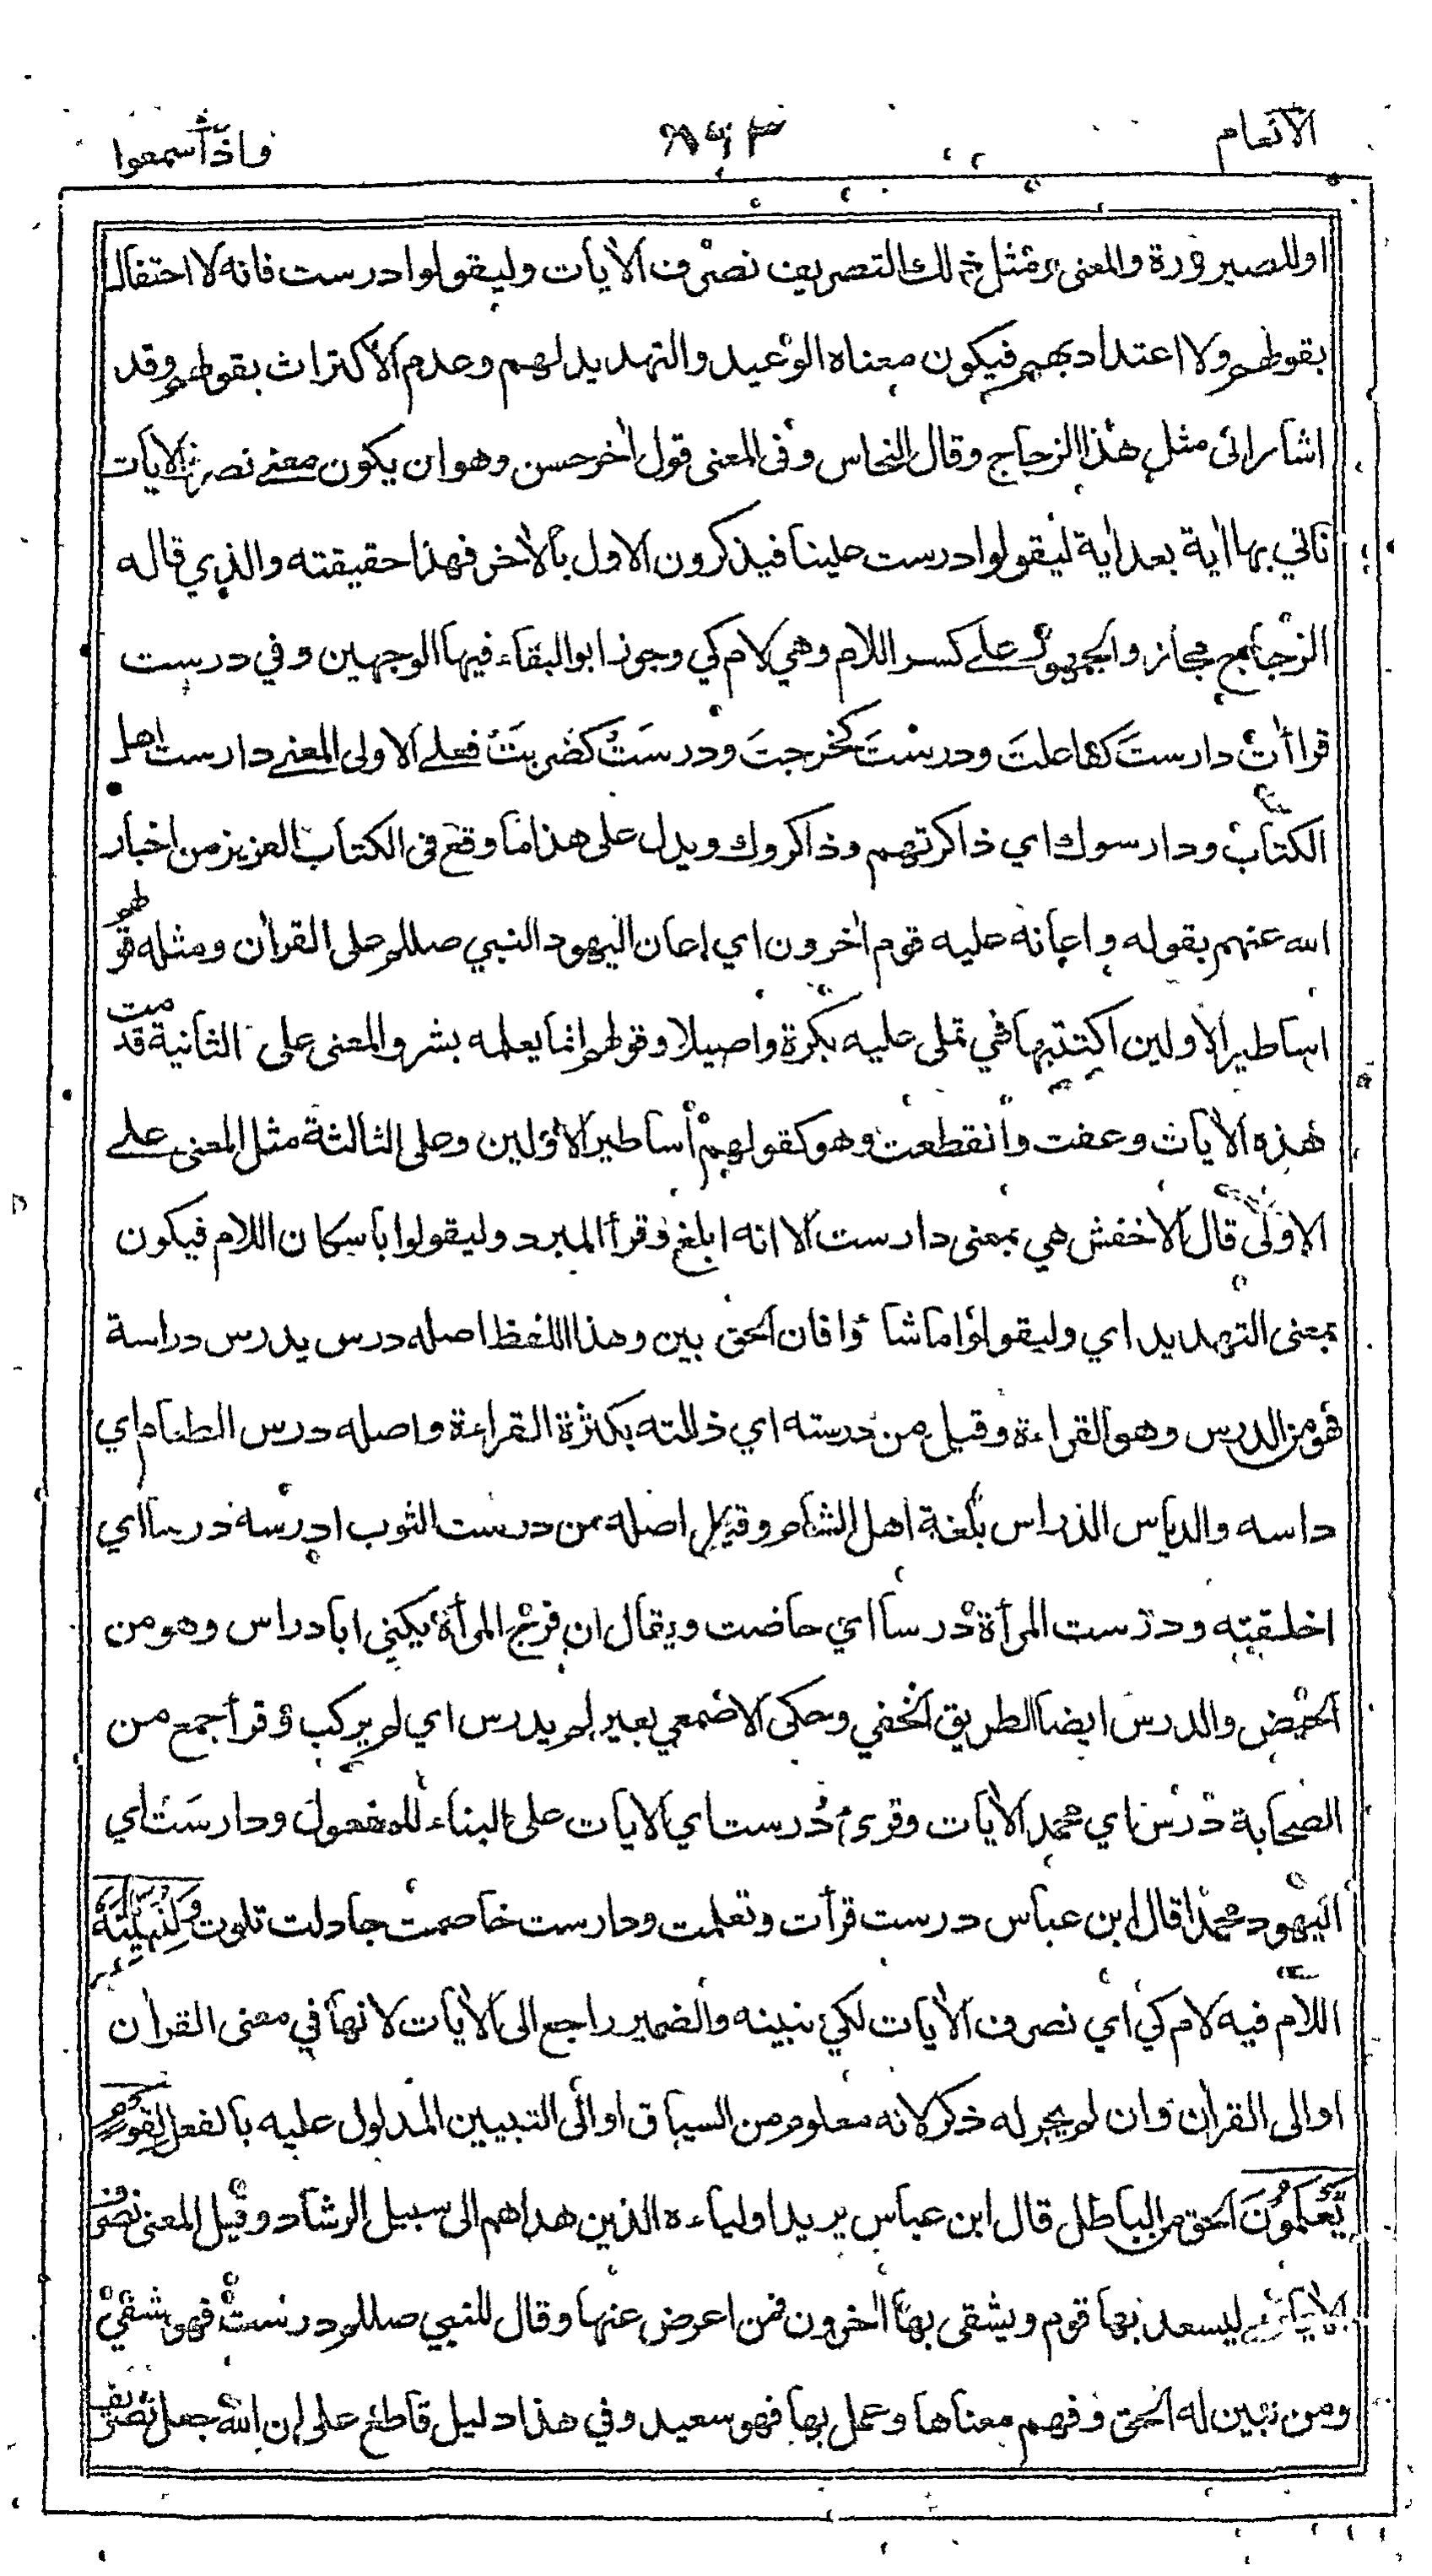 الانعام
واذا سمعوا
او للصيرورة والمعنى ومثل ذلك التصريف نصرف الأيات وليقولوا درست فانه لا احتفال
بقولهم ولا اعتداد بهم فيكون معناه الوعيد والتهديد لهم وعدم الأكتراث بقولهم وقد
اشار الى مثل هذا الزجاج وقال النحاس وفى المعنى قول أخر حسن وهو ان يكون معنے نصرف الأيات
ناتي بها أية بعد أية ليقولوا درست علينا فيذكرون الاول بالأخر فهذا حقيقته والذي قاله
الزجاج مجاز والجمهور علے كسر اللام وهي لام كي وجوز ابو البقاء فيها الوجهين وفي درست
قراأت دارستَ كفاعلتَ ودرستَ كخرجتَ ودرسَتْ كضربتْ فعلے الاولى المعنے دارست اهل
الكتاب ودارسوك اي ذاكرتهم وذاكروك ويدل على هذا ما وقع فى الكتاب العزيز من اخبار
الله عنهم بقوله واعانه عليه قوم أخرون اي اعان اليهود النبي صللم على القرأن ومثله قولهم
اساطير الأولين اكتتبها فهي تملى عليه بكرة واصيلا وقولهم انما يعلمه بشر والمعنى على الثانية قدمت
هذه الأيات وعفت وانقطعت وهو كقولهم أساطير الأولين وعلى الثالثة مثل المعنى علے
الاولى قال الأخفش هي بمعنى دارست الا انه ابلغ وقرأ المبرد وليقولوا باسكان اللام فيكون
بمعنى التهديد اي وليقولوا ما شاؤا فان الحق بين وهذا اللفظ اصله درس يدرس دراسة
فهو من الدرس وهو القراءة وقيل من درسته اي ذللته بكثرة القراءة واصله درس الطعام اي
داسه والدياس الدراس بلغة اهل الشام وقيل اصله من درست الثوب ادرسه درسا اي
اخلقته ودرست المرأة درسا اي حاضت ويقال ان فرج المرأة يكنى ابا دراس وهو من
الحيض والدرس ايضا الطريق الخفي وحكى الاصمعي بعير لم يدرس اي لم يركب وقرأ جمع من
الصحابة درس اي محمد الأيات وقرئ دُرست اي الأيات على البناء للمفعول ودارسَتْ اي
اليهود محمدا قال ابن عباس درست قرأت وتعلمت ودارست خاصمت جادلت تلوت وَلِنُبَيِّنَهُ
اللام فيه لام كي اي نصرف الأيات لكي نبينه والضمير راجع الى الأيات لانها في معنى القرأن
او الى القرأن وان لم يجر له ذكر لانه معلوم من السياق او الى التبيين المدلول عليه بالفعل لِقَوْمٍ
يَّعْلَمُوْنَ الحق من الباطل قال ابن عباس يريد اولياءه الذين هداهم الى سبيل الرشاد وقيل المعنى نصرف
الأيات ليسعد بها قوم ويشقى بها أخرون فمن اعرض عنها وقال للنبي صللم درست فهو شقي
ومن تبين له الحق وفهم معناها وعمل بها فهو سعيد وفي هذا دليل قاطع على ان الله جعل تصريف